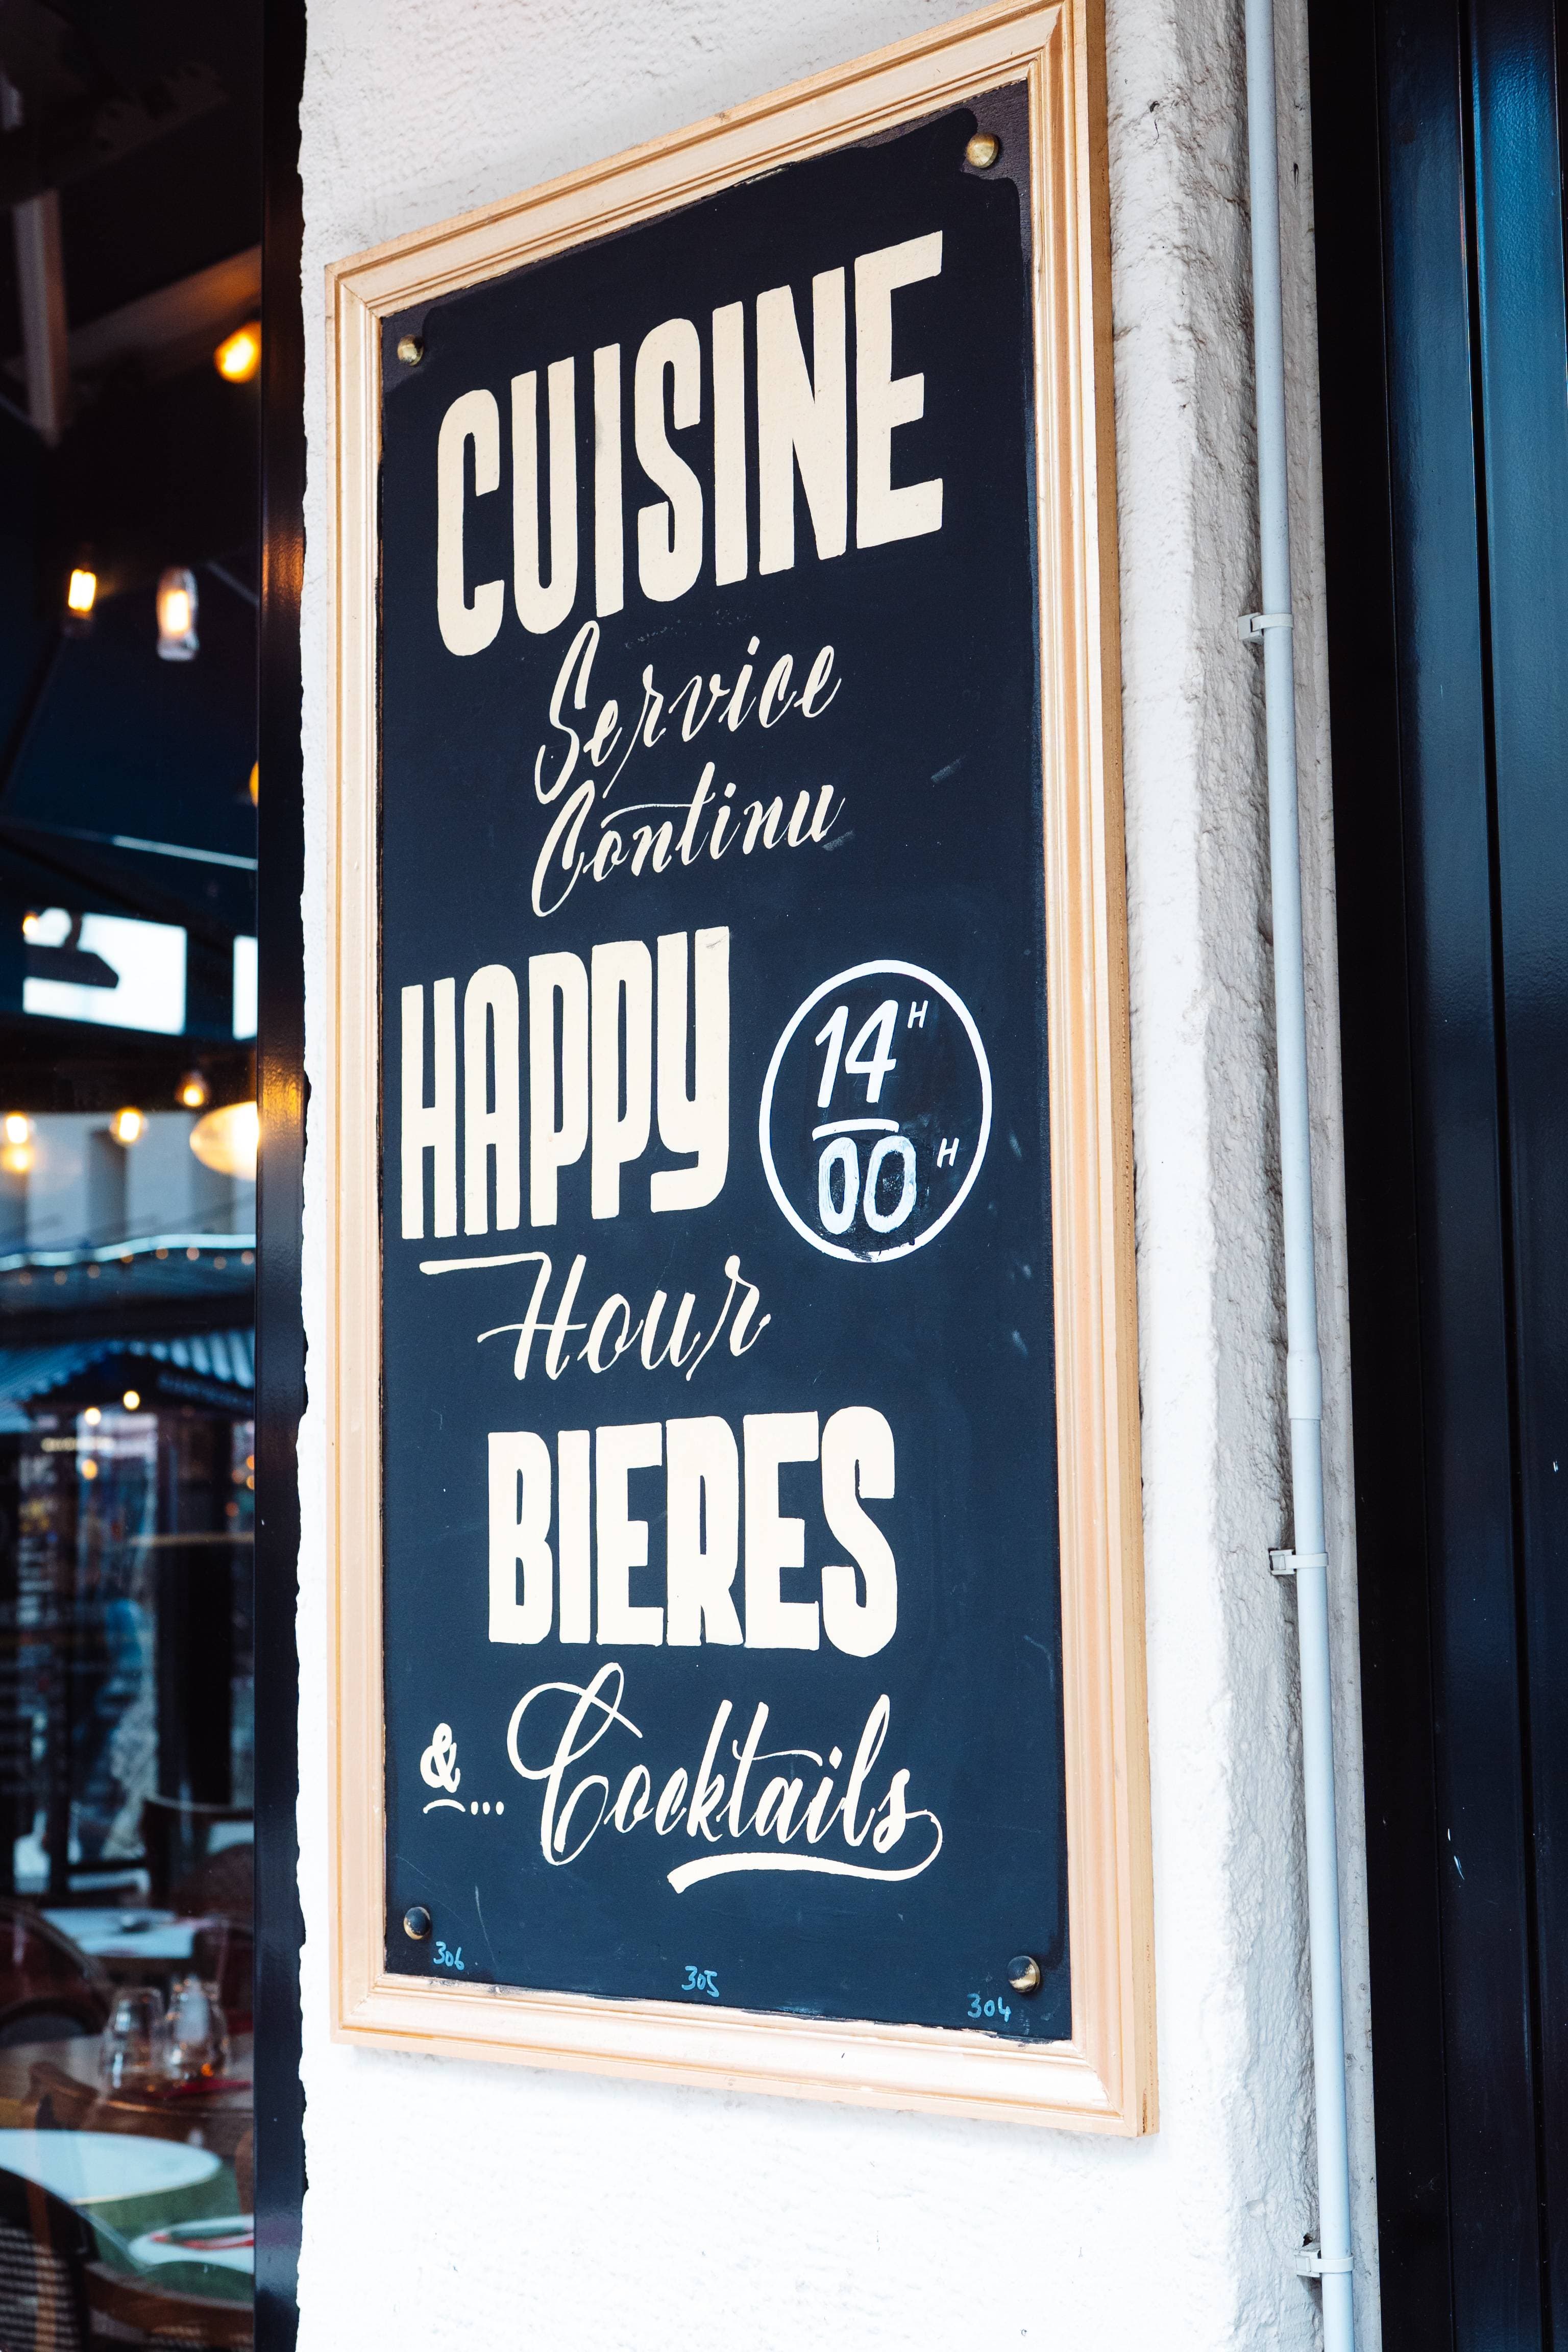 CUISINE
Service
Continu
HAPPY
14H
00H
Hour
BIERES
&... Cocktails
306 305 304